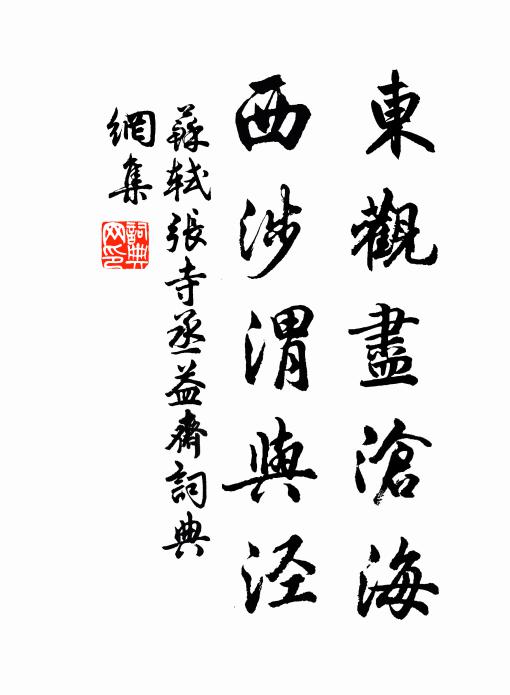 東觀盡滄海
西涉渭與涇
蘇軾張寺丞益齋詞典
網集
詞典
网印